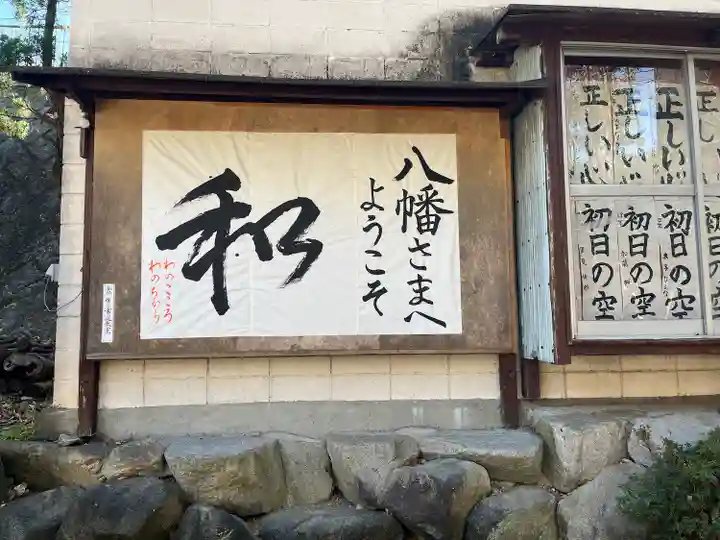 八幡さまへ
ようこそ
和
わのこころ
わのちから
正しい心
正しい心
正しい心
正しい
初日の空
初日の空
初日の空
初日